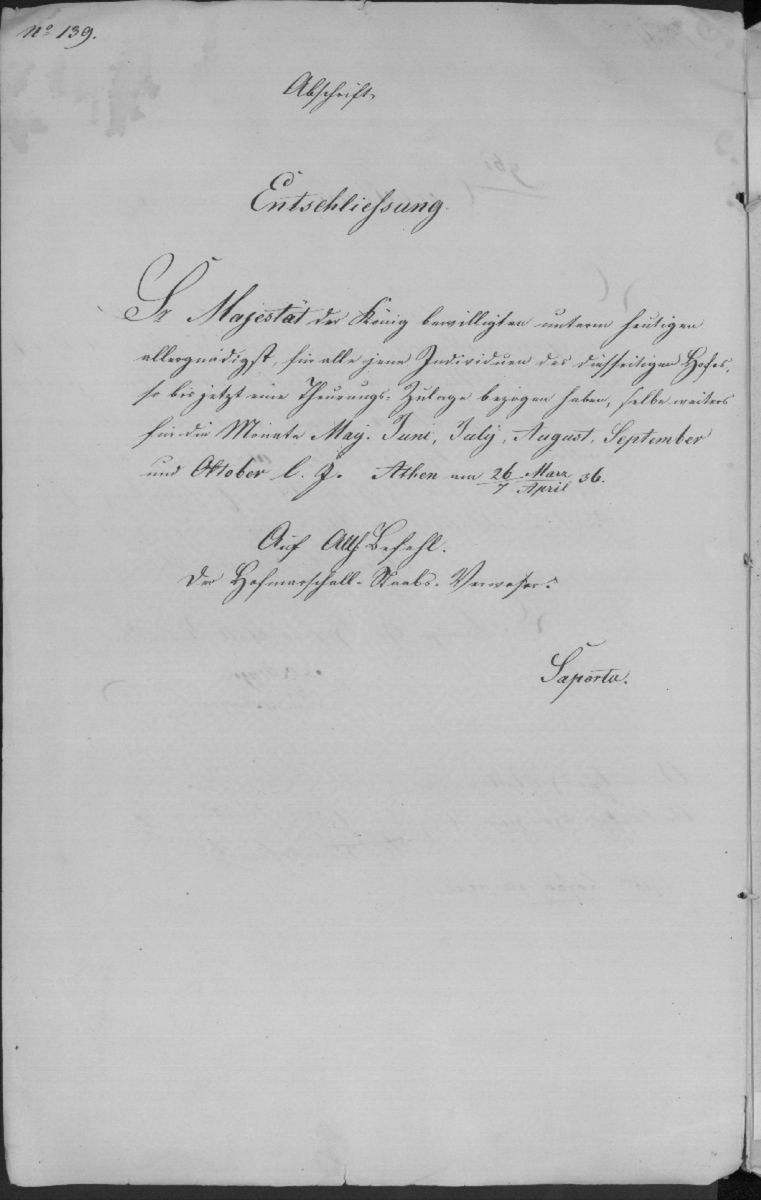 No 139.
Abschrift
Entschliessung.
Sr Majestät der König bewilligten unterm heutigen
allergnädigst, für alle jene Individuen des diesseitigen Hofes,
so bis jetzt eine Theurungs-Zulage bezogen haben, selbe weiters
für die Monate May, Juni, July, August, September
und Oktober l. J. Athen am 26 März / 7 April 36.
Auf Allh. Befehl.
Der Hofmarschall-Staabs-Verweser:
Saporta.